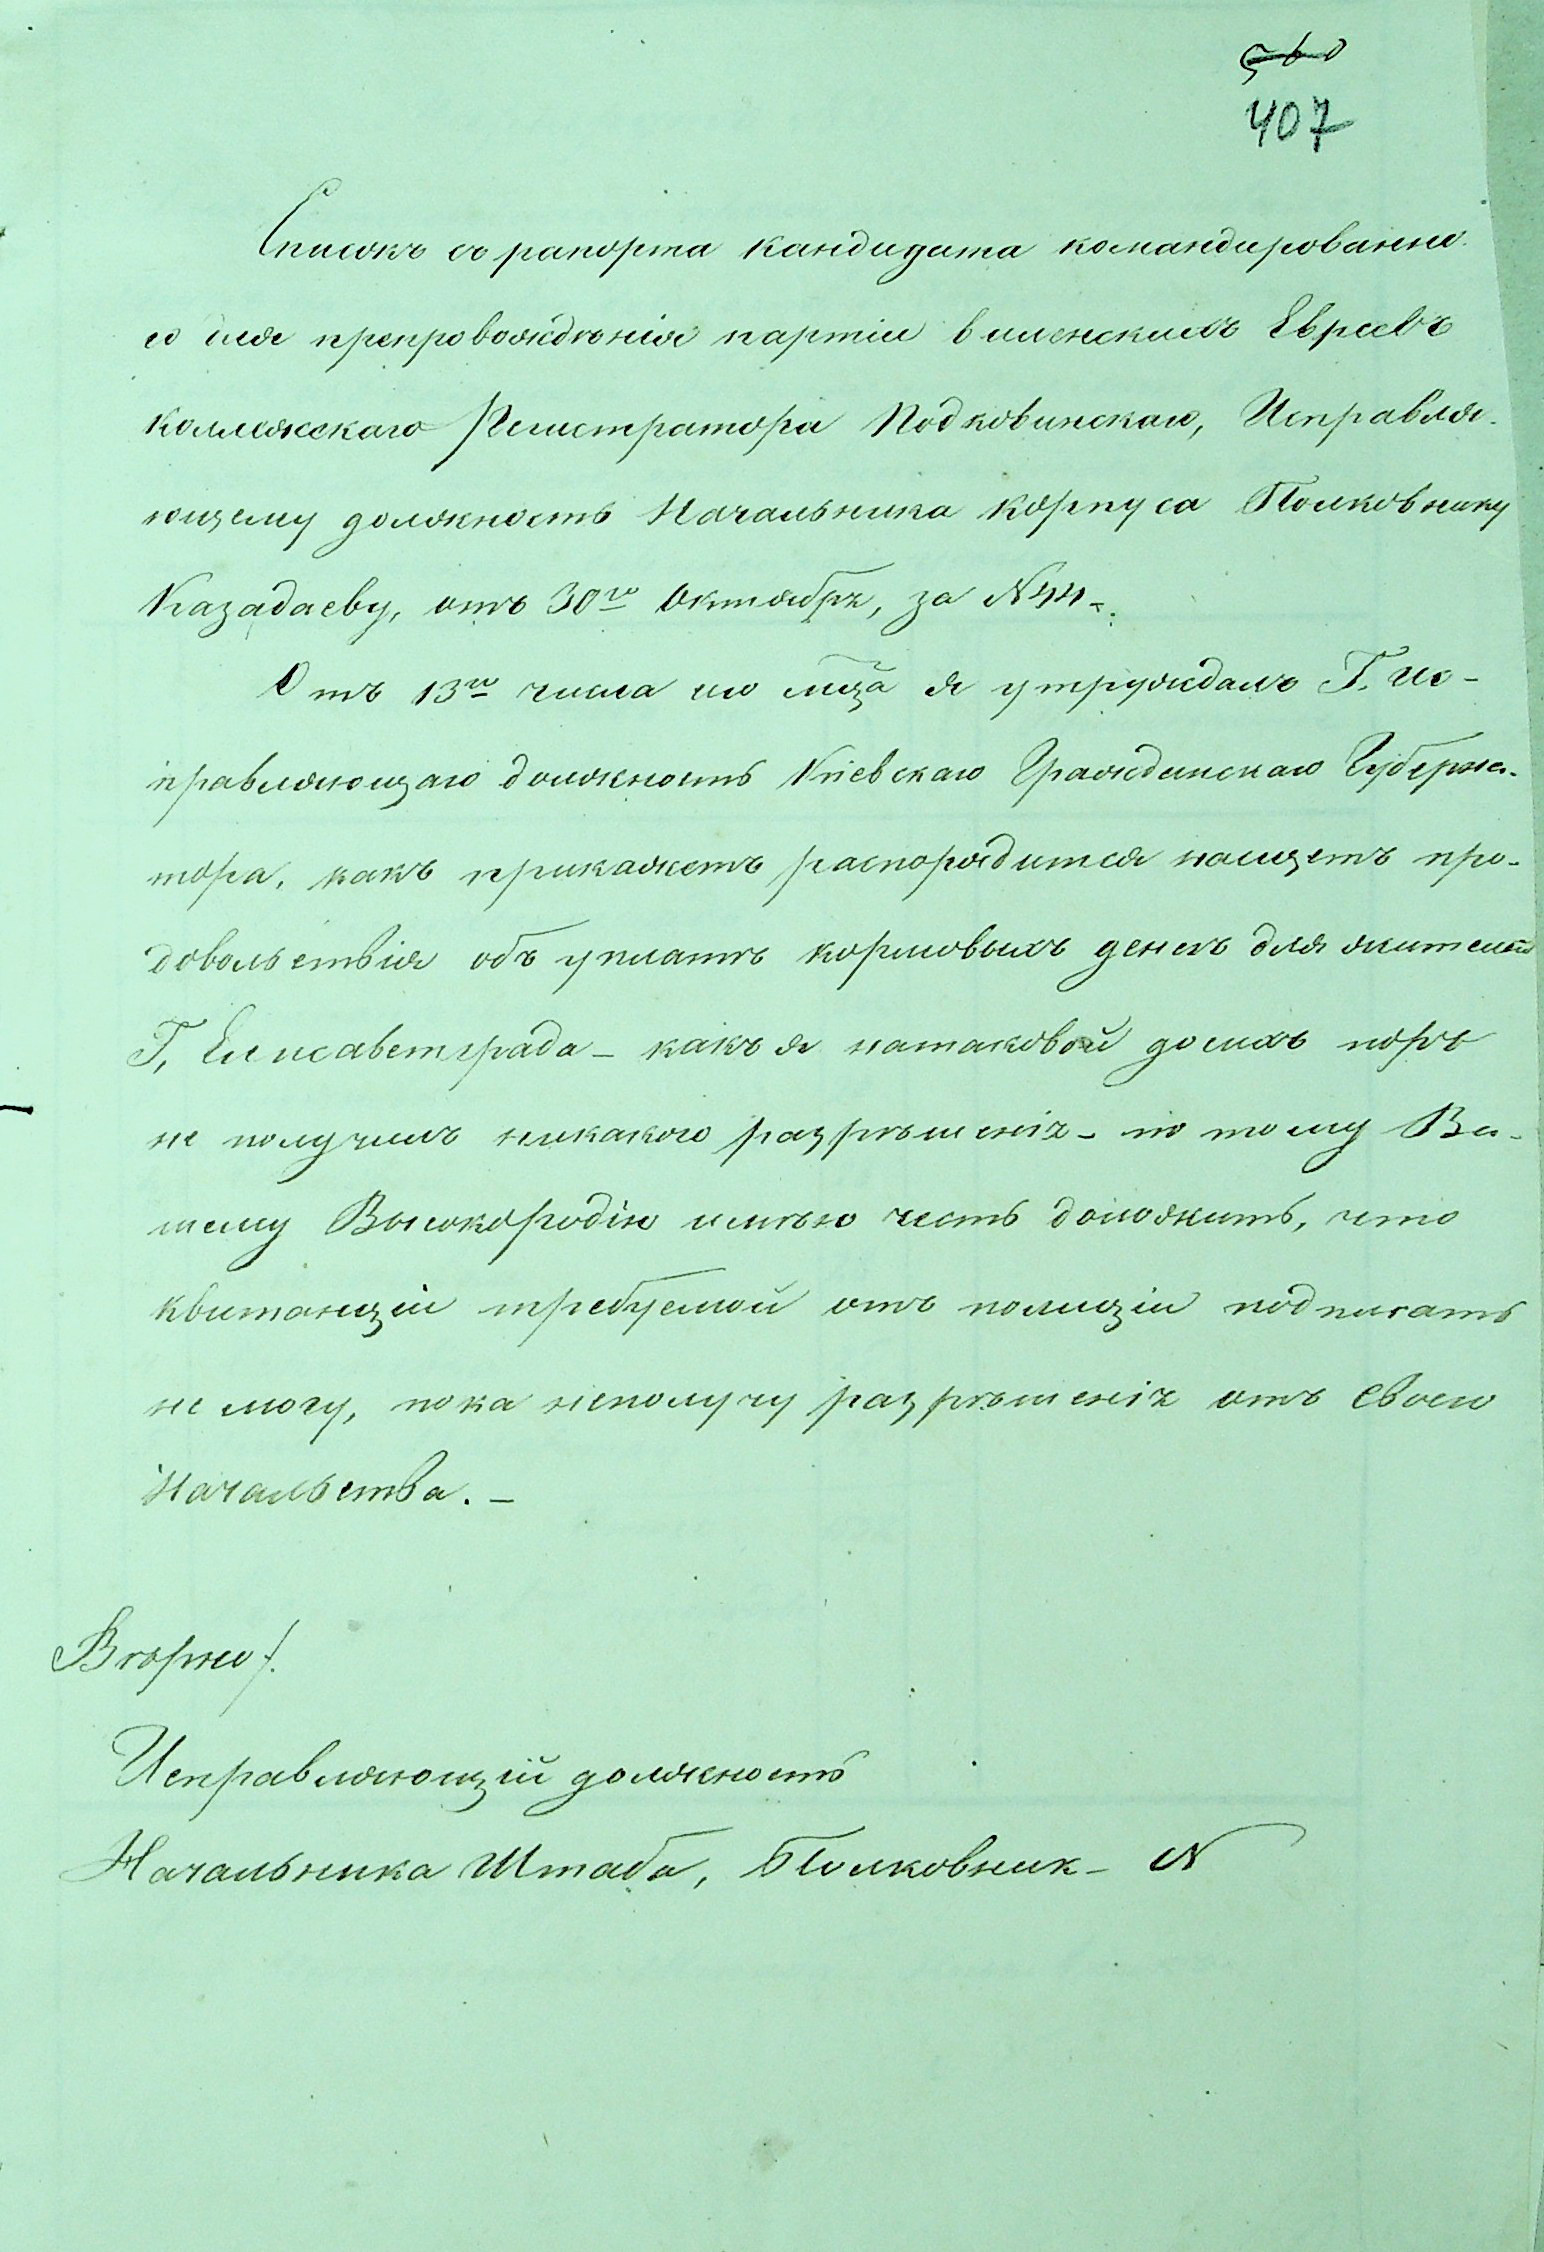 407
Списокъ съ рапорта кандидата командированна-
го для препровожденія партіи виленскихъ Евреевъ
коллежскаго Регистратора Подковинскаго, Исправля-
ющему должность Начальника корпуса Полковнику
Казадаеву, отъ 30го Октября, за №44.
Отъ 13го числа сго мца я утруждалъ Г. Ис-
правляющаго должность Кіевскаго Гражданскаго Губерна-
тора, какъ прикажетъ распорядится насщетъ про-
довольствія объ уплатѣ кормовыхъ денегъ для жителей
Г. Елисаветграда - какъ я натаковой досихъ поръ
не получилъ никакого разрѣшенія - по тому Ва-
шему Высокородію имѣю честь доложить, что
квитанціи требуемой отъ полиціи подписать
не могу, пока неполучу разрѣшенія отъ своего
Начальства. -
Вѣрно:
Исправляющій должность
Начальника Штаба, Полковник - N